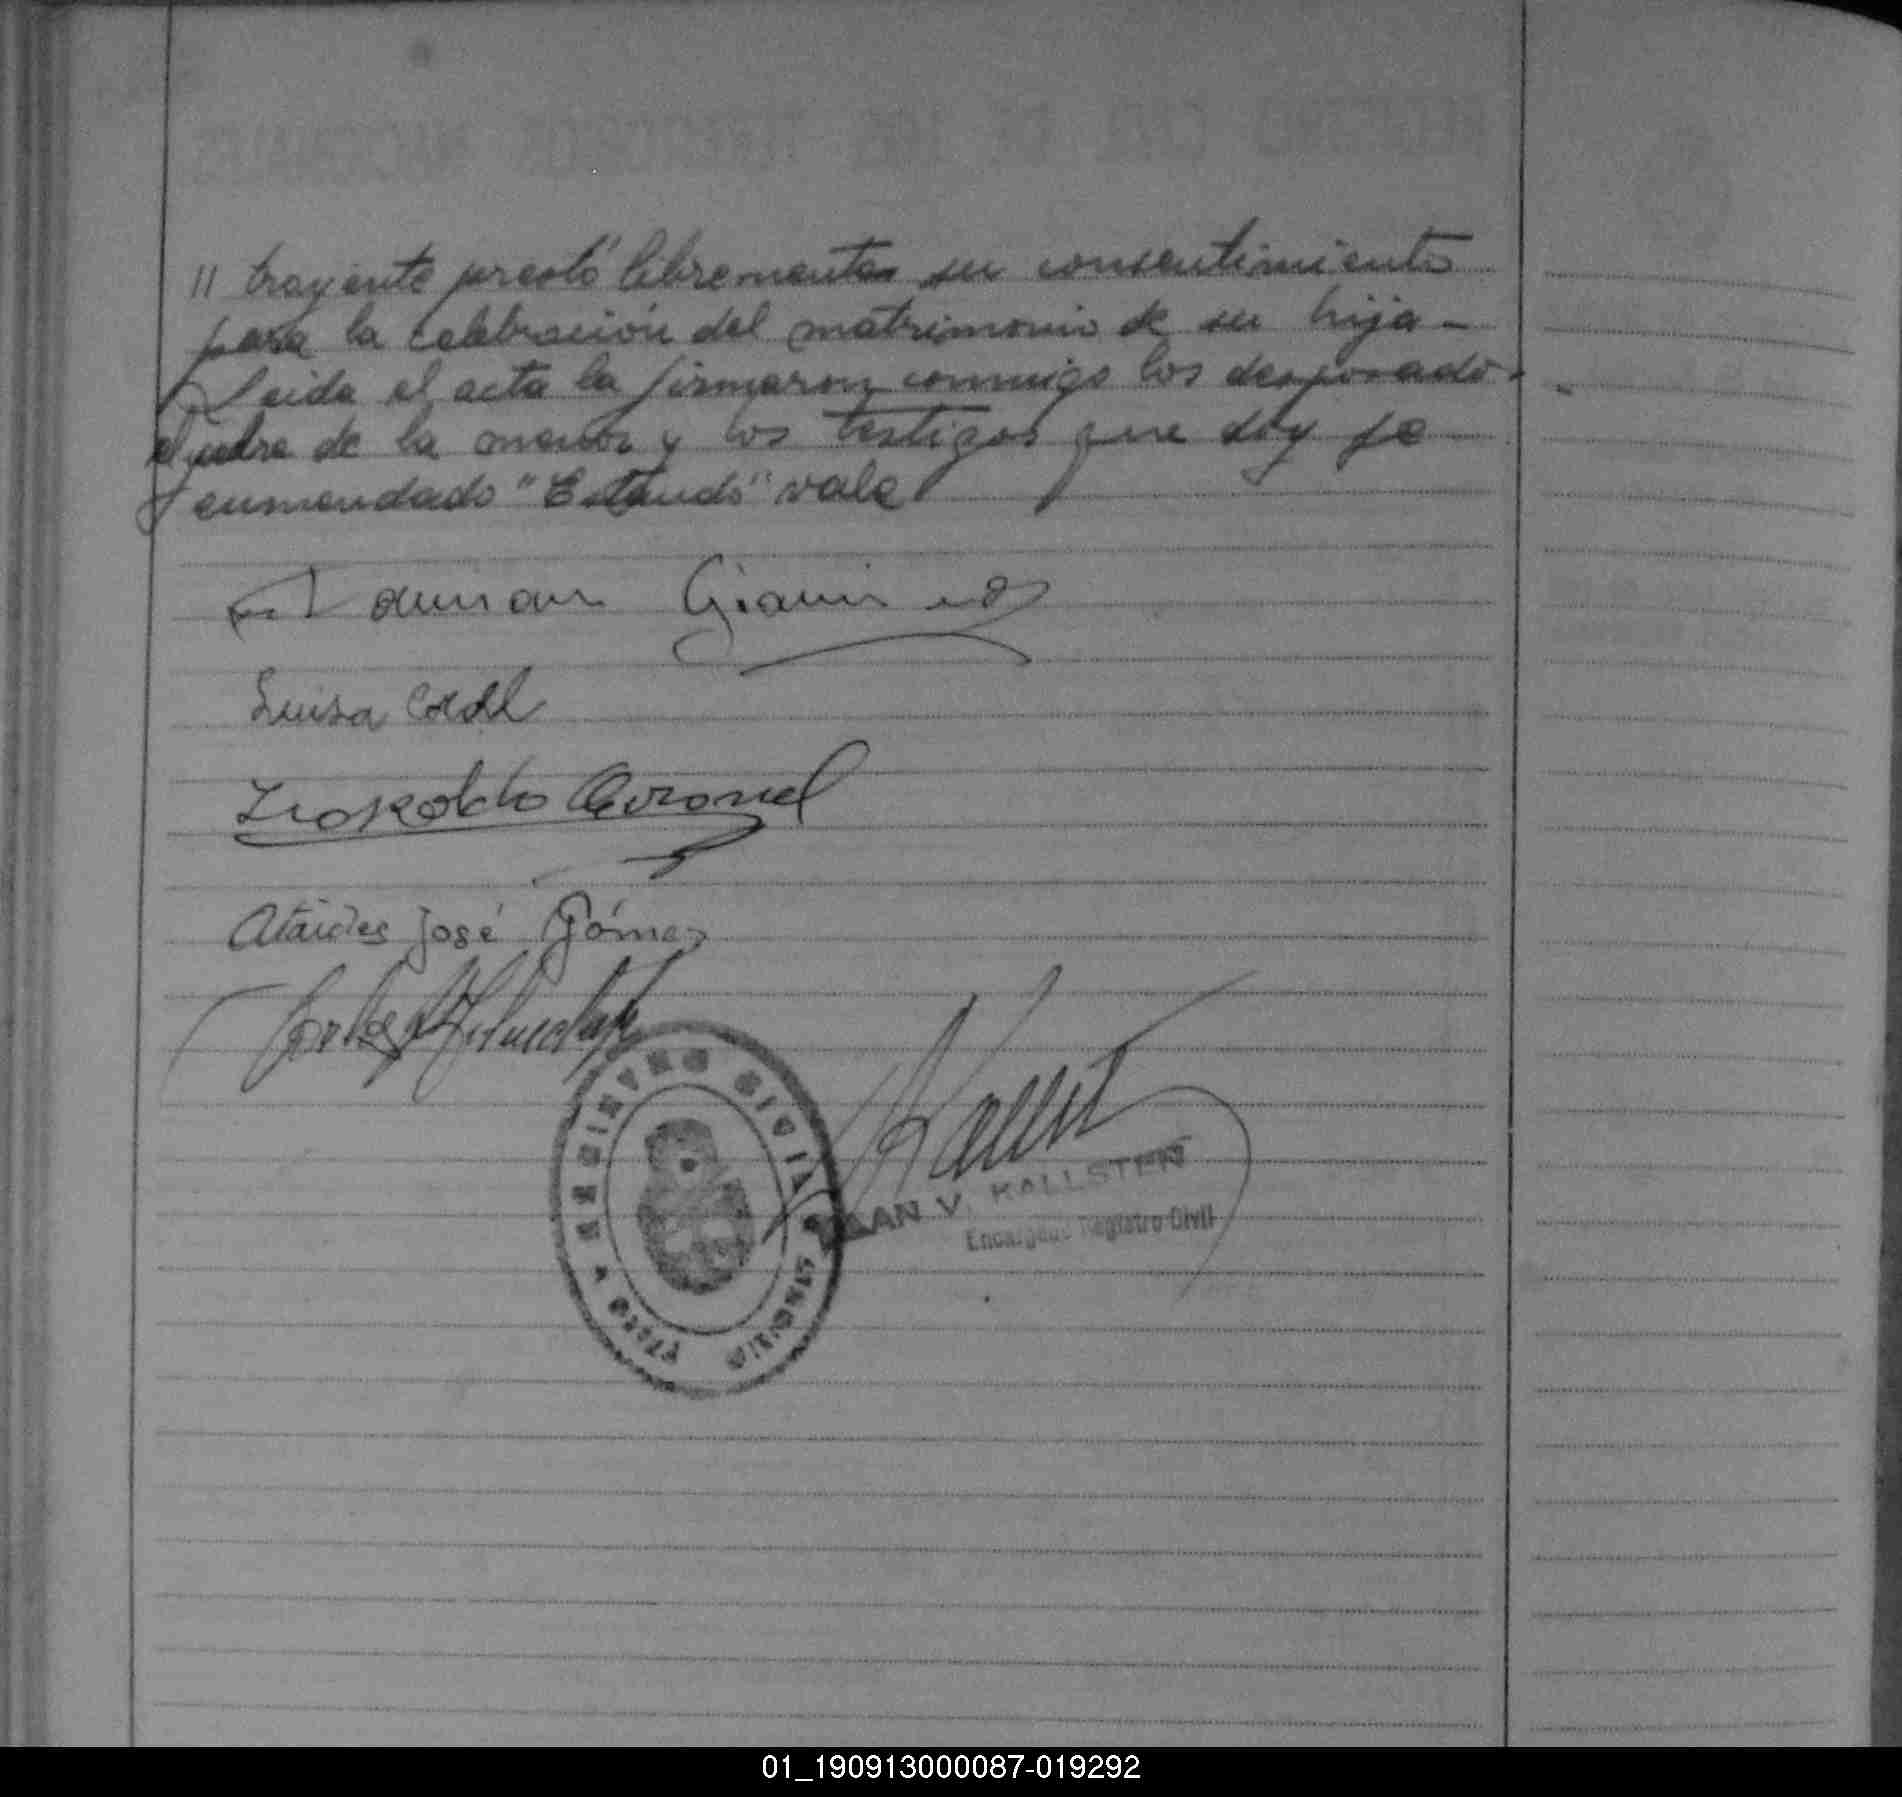 // trayente prestó libremente su consentimiento
para la celebración del matrimonio de su hija -
Leida el acta la firmaron conmigo los desposado-
el padre de la menor y los testigos que doy fe
enmendado "Estando" vale
Luisa
Coronel
Ataides José Gómez
REGISTRO CIVIL
KALLSTEN
Encargado Registro Civil
01_190913000087-019292